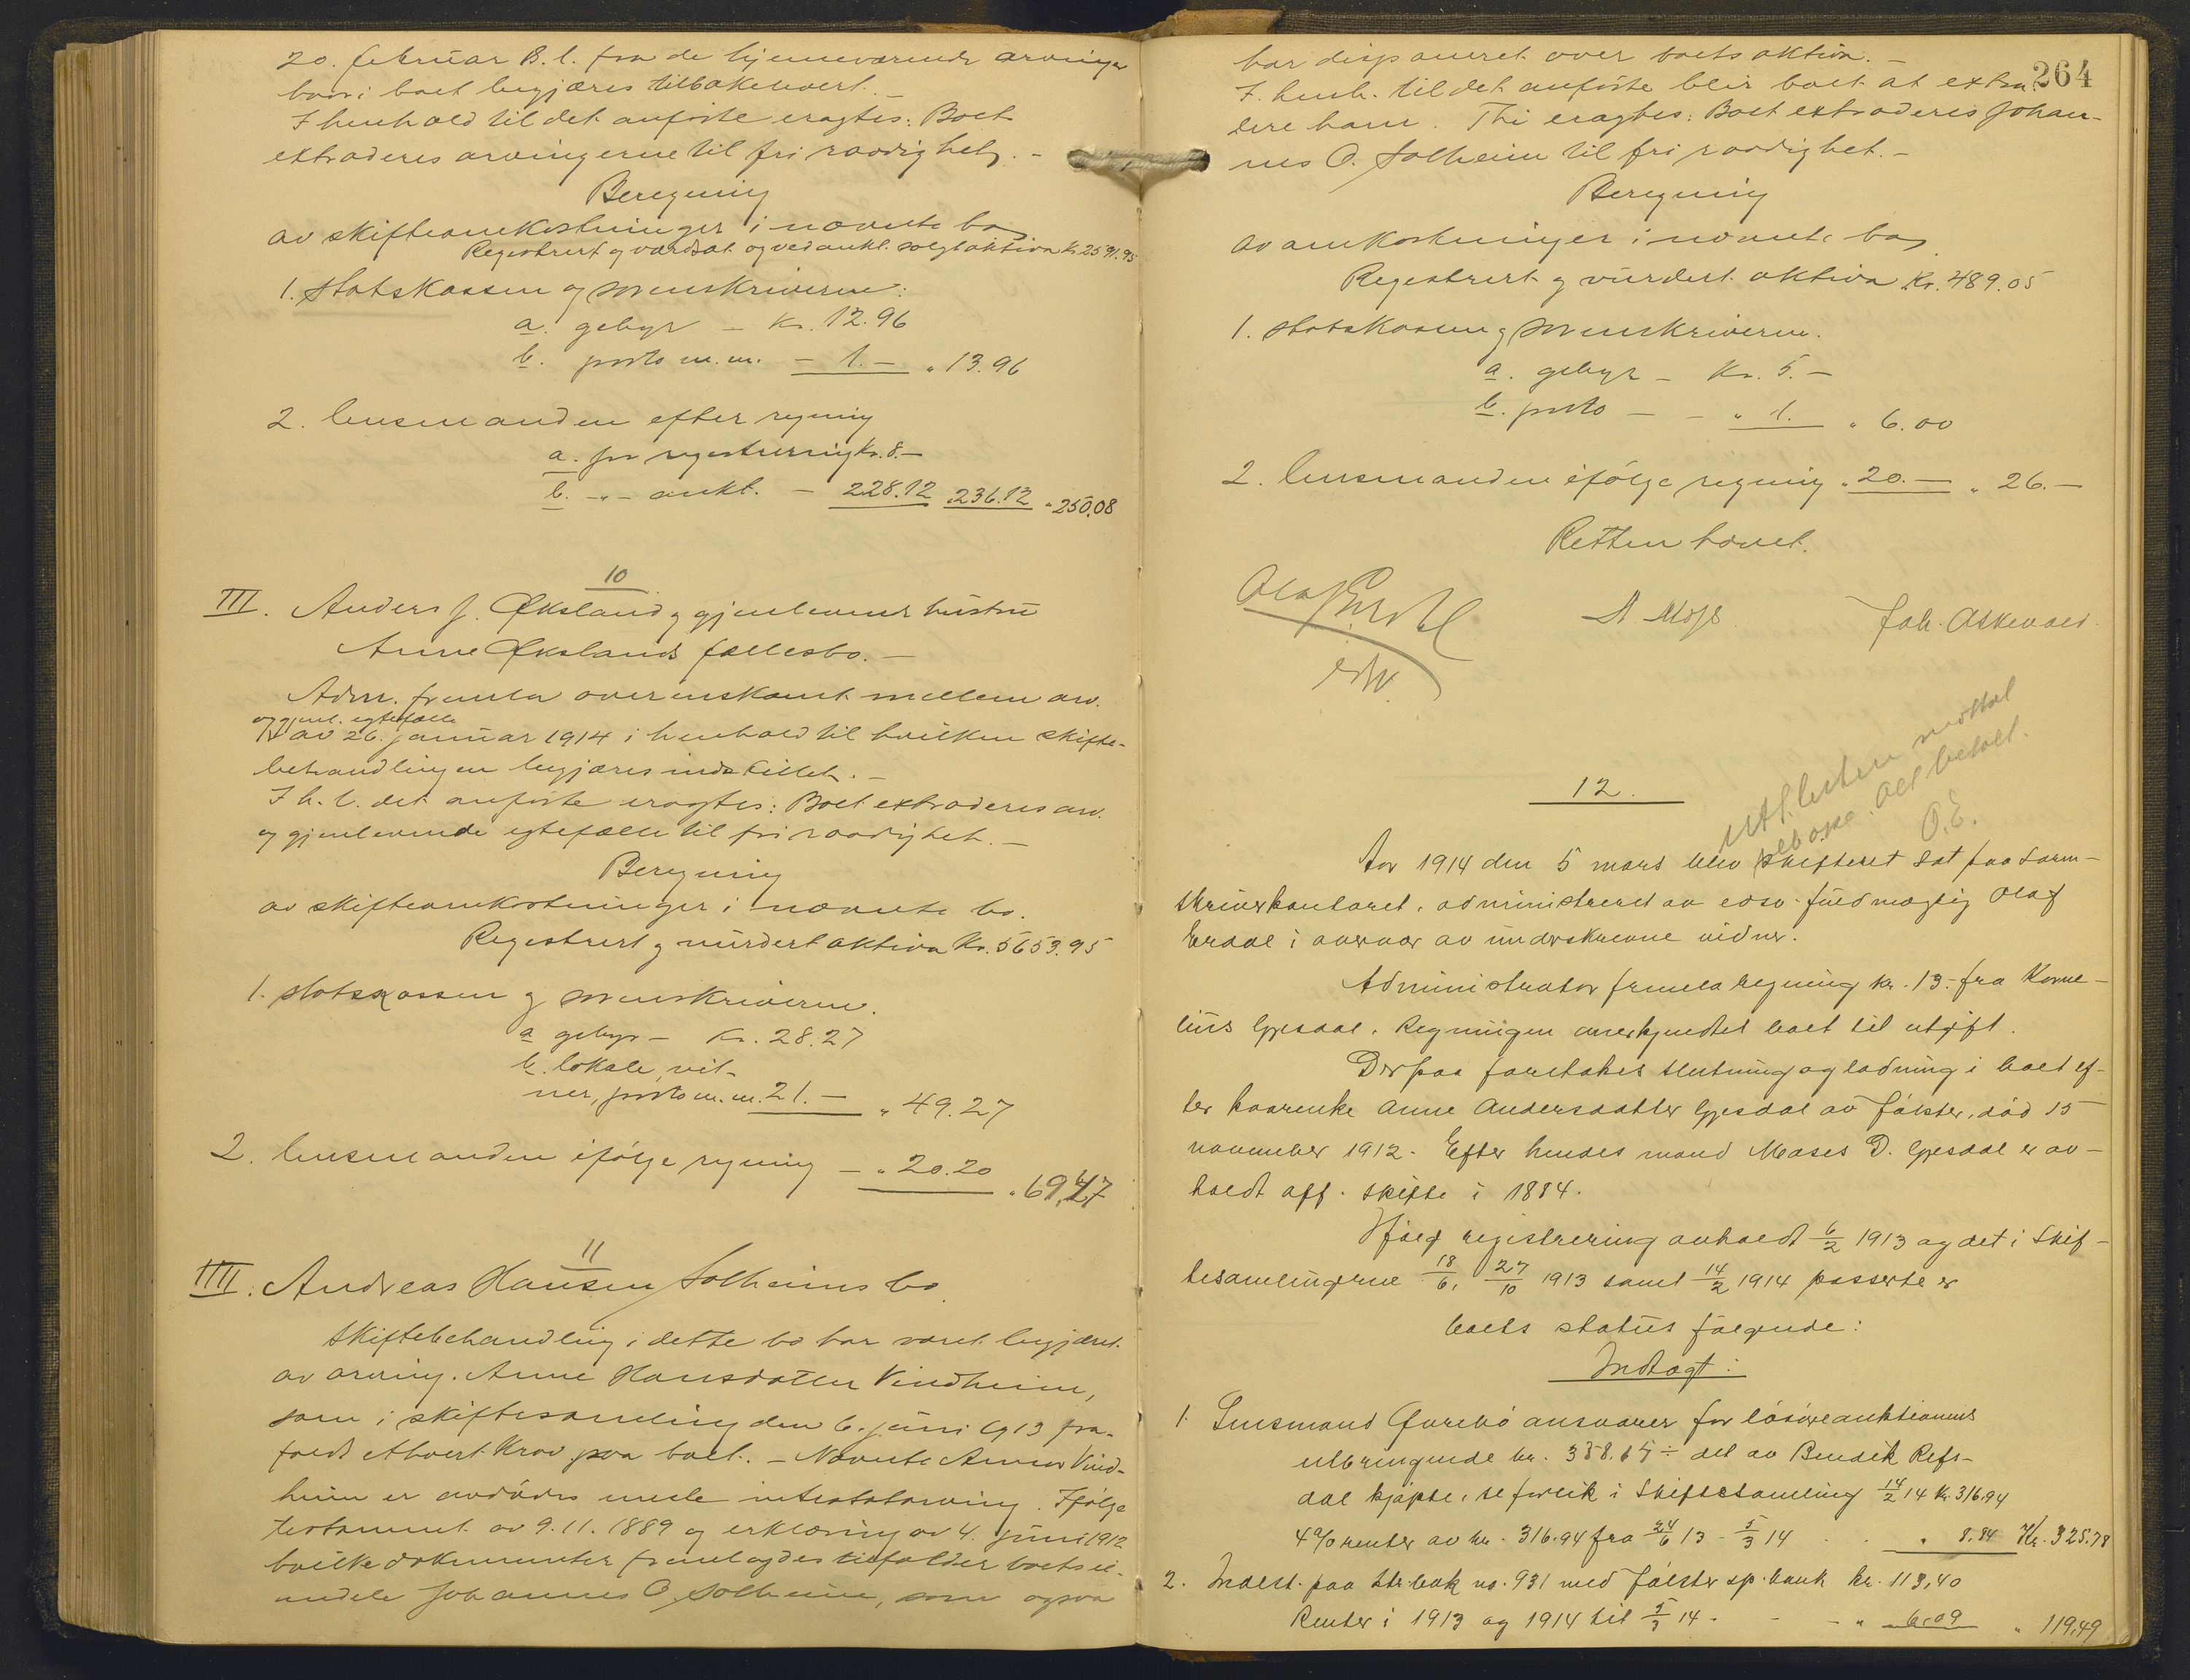 20. februar B. l. fra de hjemmeværende arvinger
hvori boet begjæres tilbakelevert. –
I henhold til det anförte eragtes: Boet
extraderes arvingerne til fri raadighet. –
Beregning
av skifteomkostninger i nævnte bo,
Registrert og værdsat og ved aukt. solgt aktiva kr. 2591.95
1. Statskassen og sorenskriveren:
a. gebyr – Kr. 12.96
b. porto m.m. – 1.– " 13.96
2. lensmanden efter regning
a. for registrering kr. 8.–
b. –"– aukt. – 228.12 236.12 " 250.08
10
III. Anders J. Øksland og gjenlevende hustru
Anne Økslands fællesbo. –
Adm. fremla overenskomst mellem arv.
og gjenl. egtefælle
av 26. januar 1914 i henhold til hvilken skifte-
behandlingen begjæres indstillet. –
I h. t. det anförte eragtes: Boet extraderes arv.
og gjenlevende egtefælle til fri raadighet. –
Beregning
av skifteomkostninger i nævnte bo.
Registrert og vurdert aktiva Kr. 5653.95
1. Statskassen og sorenskriveren.
a gebyr – Kr. 28.27
b. lokale, vit-
ner, porto m.m. 21.– " 49.27
2. lensmanden ifölge regning – " 20.20 " 69,47
11
IIII. Andreas Hansen Solheims bo.
Skiftebehandling i dette bo har været begjæret
av arving. Anne Hansdatter Vindheim,
som i skiftesamling den 6. juni 1913 fra-
faldt ethvert krav paa boet. – Nævnte Anne Vind-
heim er avdödes eneste intestatarving. Ifölge
testament av 9.11.1889 og erklæring av 4. juni 1912
hvilke dokumenter fremlagdes tilfalder boets ei-
endele Johannes O. Solheim, som ogsaa
264
har disponeret over boets aktiva. –
I henh. til det anförte blir boet at extra-
dere ham. Thi eragtes: Boet extraderes Johan-
nes O. Solheim til fri raadighet. –
Beregning
av omkostninger i nævnte bo,
Registrert og vurdert aktiva Kr. 489.05
1. Statskassen og sorenskriveren.
a. gebyr – Kr. 5.–
b. porto – – " 1. " 6.00
2. lensmanden ifölge regning " 20.– " 26.–
Retten hævet.
Olaf Erdal
Joh. Askevold.
edsv.
12.
Alt betalt.
O.E.
Aar 1914 den 5 mars blev skifteret sat paa Soren-
skriverkontoret, administreret av edsv. fuldmægtig Olaf
Erdal i overvær av underskrevne vidner.
Administrator fremla regning kr. 13.– fra Korne-
lius Gjesdal. Regningen anerkjendtes boet til utgift.
Derpaa foretokes slutning og lodning i boet ef-
ter kaarenke Anne Andersdatter Gjesdal av Jölster, död 15
november 1912. Efter hendes mand Moses D. Gjesdal er av-
holdt off. skifte i 1884.
Ifölg registrering avholdt 6/2 1913 og det i Skif-
tesamlingerne 18/6, 27/10 1913 samt 14/2 1914 passerte er
boets status fölgende:
Indtægt:
1. Lensmand ansvarer for lösöreauktionens
utbringende kr. 358.65 ÷ det av Bendik Refs-
dal kjöpte, se forlik i Skiftesamling 14/2 14 Kr. 316.94
4% renter av kr. 316.94 fra 24/6 13 – 5/3 14 . . " 8.84 Kr. 325.78
2. Indest. paa ktr.bok no. 931 med Jölster sp.bank kr. 113,40
Renter i 1913 og 1914 til 5/3 14 . – – " 6.09 " 119,49